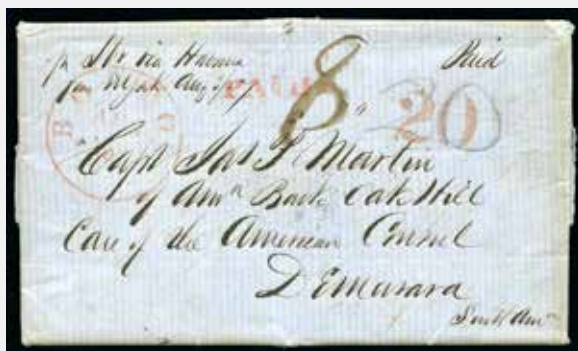 pr Str via Havana Paid
from N York Aug
PAID 8 20
Capt Jas F Martin
of Amn Bark Oak Hill
Care of the American Consul
Demarara
South Amn